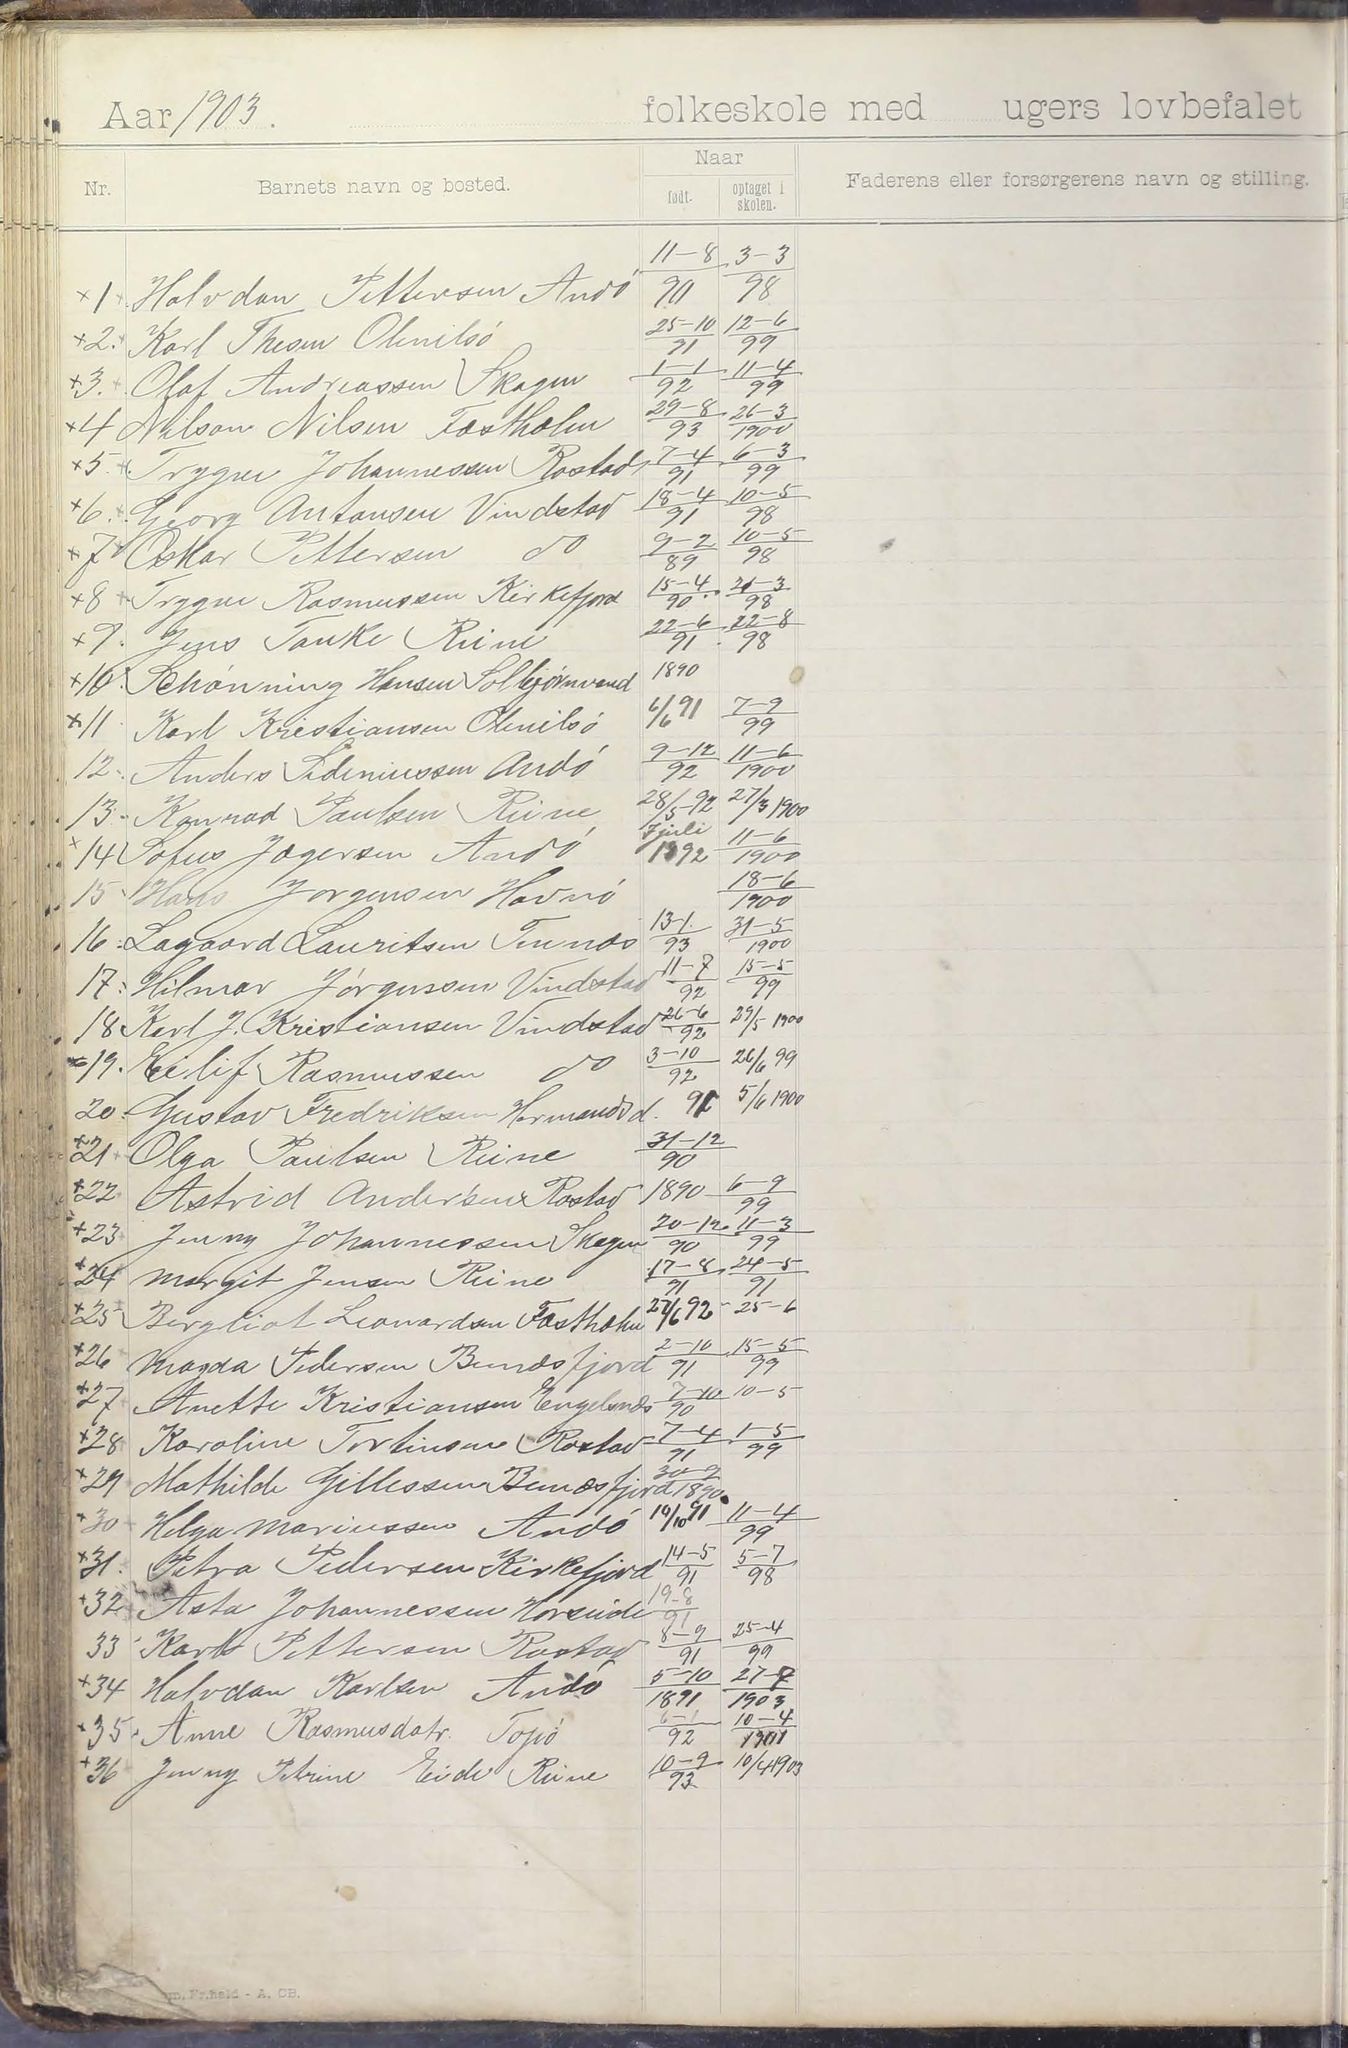 Aar 1903. folkeskole med ugers lovbefalet
Nr. Barnets navn og bosted. Naar født. optaget i skolen. Faderens eller forsørgerens navn og stilling.
+1 Halvdan Pettersen Andö 11-8/90 3-3/98
+2. Karl Thesen Olenilsö 25-10/91 12-6/99
+3. Olaf Andreassen Skagen 1-1/92 11-4/99
+4 Nilson Nilsen Fæstholm 29-8/93 26-3/1900
+5 Trygve Johannessen Rostad 7-4/91 6-3/99
+6. Georg Antonsen Vindstad 18-4/91 10-5/98
+7 Oskar Pettersen do 9-2/89 10-5/98
+8 Trygve Rasmussen Kirkefjord 15-4/90 21-3/98
+9. Jens Tanke Reine 22-6/91 22-8/98
+10. Schønning Hansen Solbjørnvand 1890
+11 Karl Kristiansen Olenilsö 6/6 91 7-9/99
12. Anders Sideniussen Andö 9-12/92 11-6/1900
13. Konrad Paulsen Reine 28/5 92 27/3 1900
+14 Sofus Jægersen Andö 7 juli 1892 11-6/1900
15 Hans Jørgensen Havnö 18-6/1900
16. Lagaard Lauritsen Tennes 13-1/93 31-5/1900
17. Hilmar Jörgensen Vindstad 11-7/92 15-5/99
18 Karl J. Kristiansen Vindstad 26-6/92 29/5 1900
+19. Eilif Rasmussen do 3-10/92 26/6 99
20. Gustav Fredriksen Hermandsd. 91 5/6 1900
+21 Olga Paulsen Reine 31-12/90
+22 Astrid Andersen Rostad 1890 6-9/99
+23 Jenny Johannessen Skagen 20-12/90 11-3/99
+24 Margit Jensen Reine 17-8/91 24-5/91
+25 Bergliot Leonardsen Fæstholm 27/6 92 25-6
+26 Magda Pedersen Bunæsfjord 2-10/91 15-5/99
+27 Anette Kristiansen Engelsnes 7-10/90 10-5
+28 Karoline Tortinsen Rostad 7-4/91 1-5/99
+29 Mathilde Gillessen Bunæsfjord 30-9/1890
+30 Helga Mariussen Andö 10/10 91 11-4/99
+31. Petra Pedersen Kirkefjord 14-5/91 5-7/98
+32 Asta Johannessen Horseide 19-8/91
33 Karl Pettersen Rostad 8-9/91 25-4/99
+34 Halvdan Karlsen Andö 5-10/1891 27-7/1903
+35. Anne Rasmusdatr. Topö 6-1/92 10-4/1901
+36 Jenny Petrine Eide Reine 10-9/93 10/4 1903
Fr.hald - A. CB.